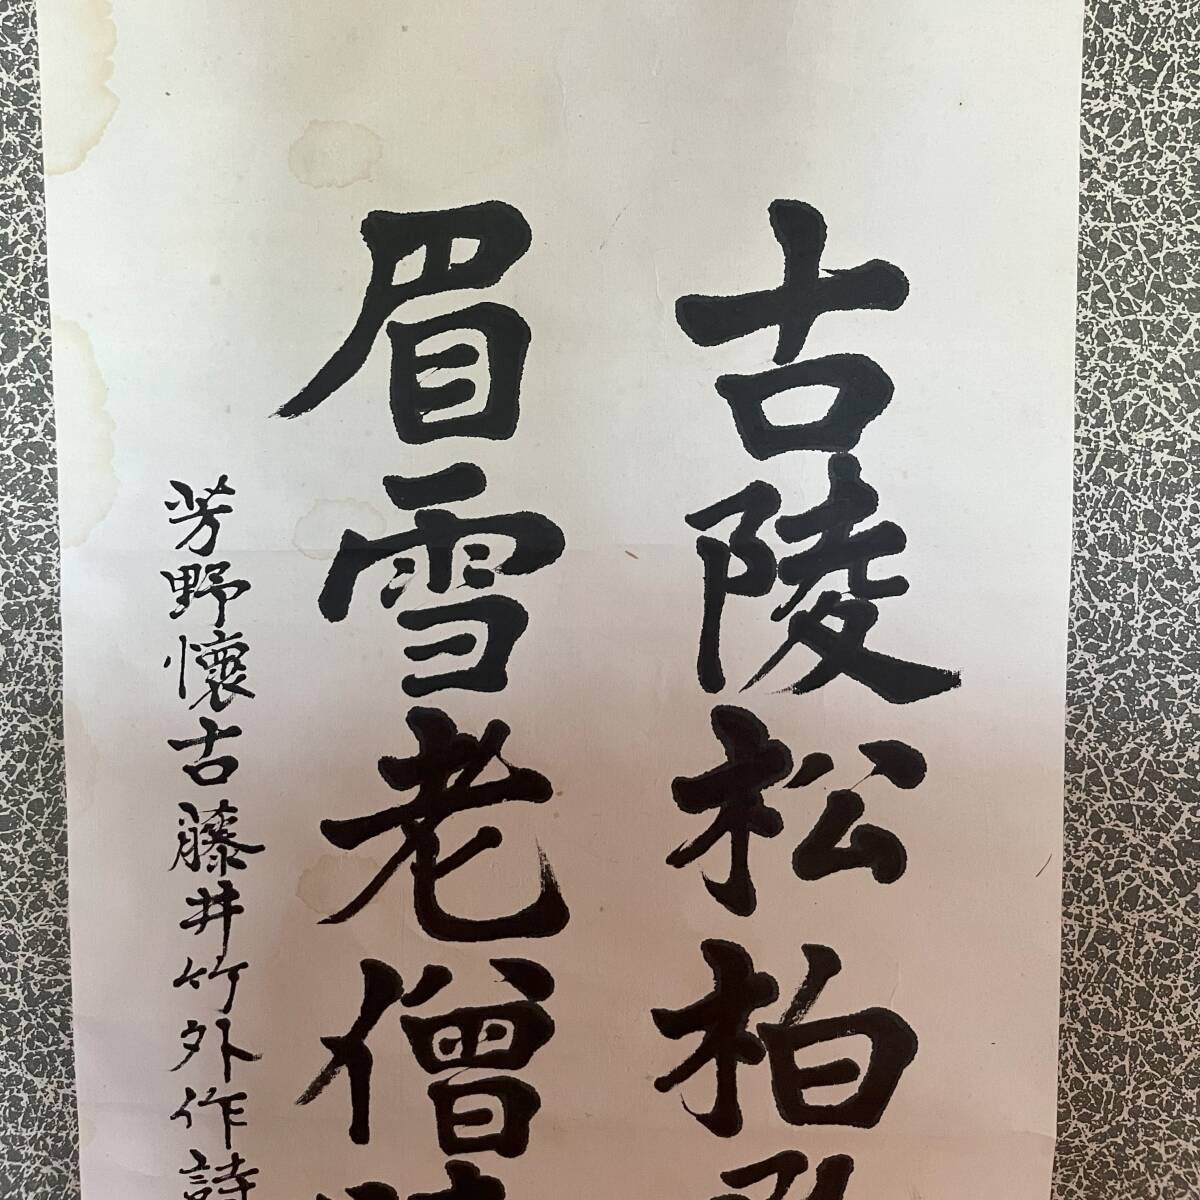 古陵松柏
眉雪老僧
芳野懐古藤井竹外作詩